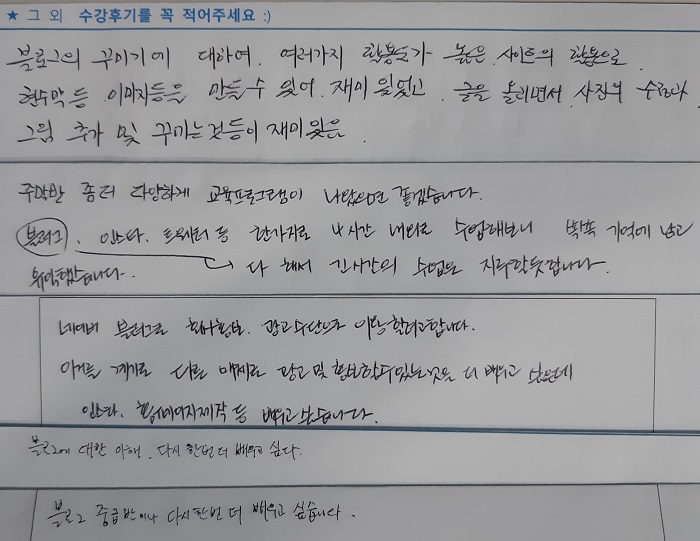 ★ 그 외 수강후기를 꼭 적어주세요 :)
블로그의 꾸미기에 대하여, 여러가지 활용도가 높은 사이트의 활용으로
현수막 등 이미지들을 만들 수 있어 재미있었고, 글을 올리면서 사진부
그림 추가 및 꾸미는것등이 재미있음.
주말반 좀더 다양하게 교육프로그램이 나왔으면 좋겠습니다.
블러그, 인스타, 트위터 등 한가지로 4시간 내외로 수업해보니 팍팍 기억에 남고
유익했습니다. → 다 해서 긴시간의 수업은 지루할듯합니다.
네이버 블러그로 회사홍보, 광고수단으로 이용할려고합니다.
이거를 계기로 다른 매체로 광고 및 홍보할수있는것을 더 배우고 싶은데
인스타, 홈페이지제작 등 배우고싶습니다.
블로그에 대한 이해, 다시 한번 더 배우고 싶다.
블로그 중급반이나 다시한번 더 배우고 싶습니다.